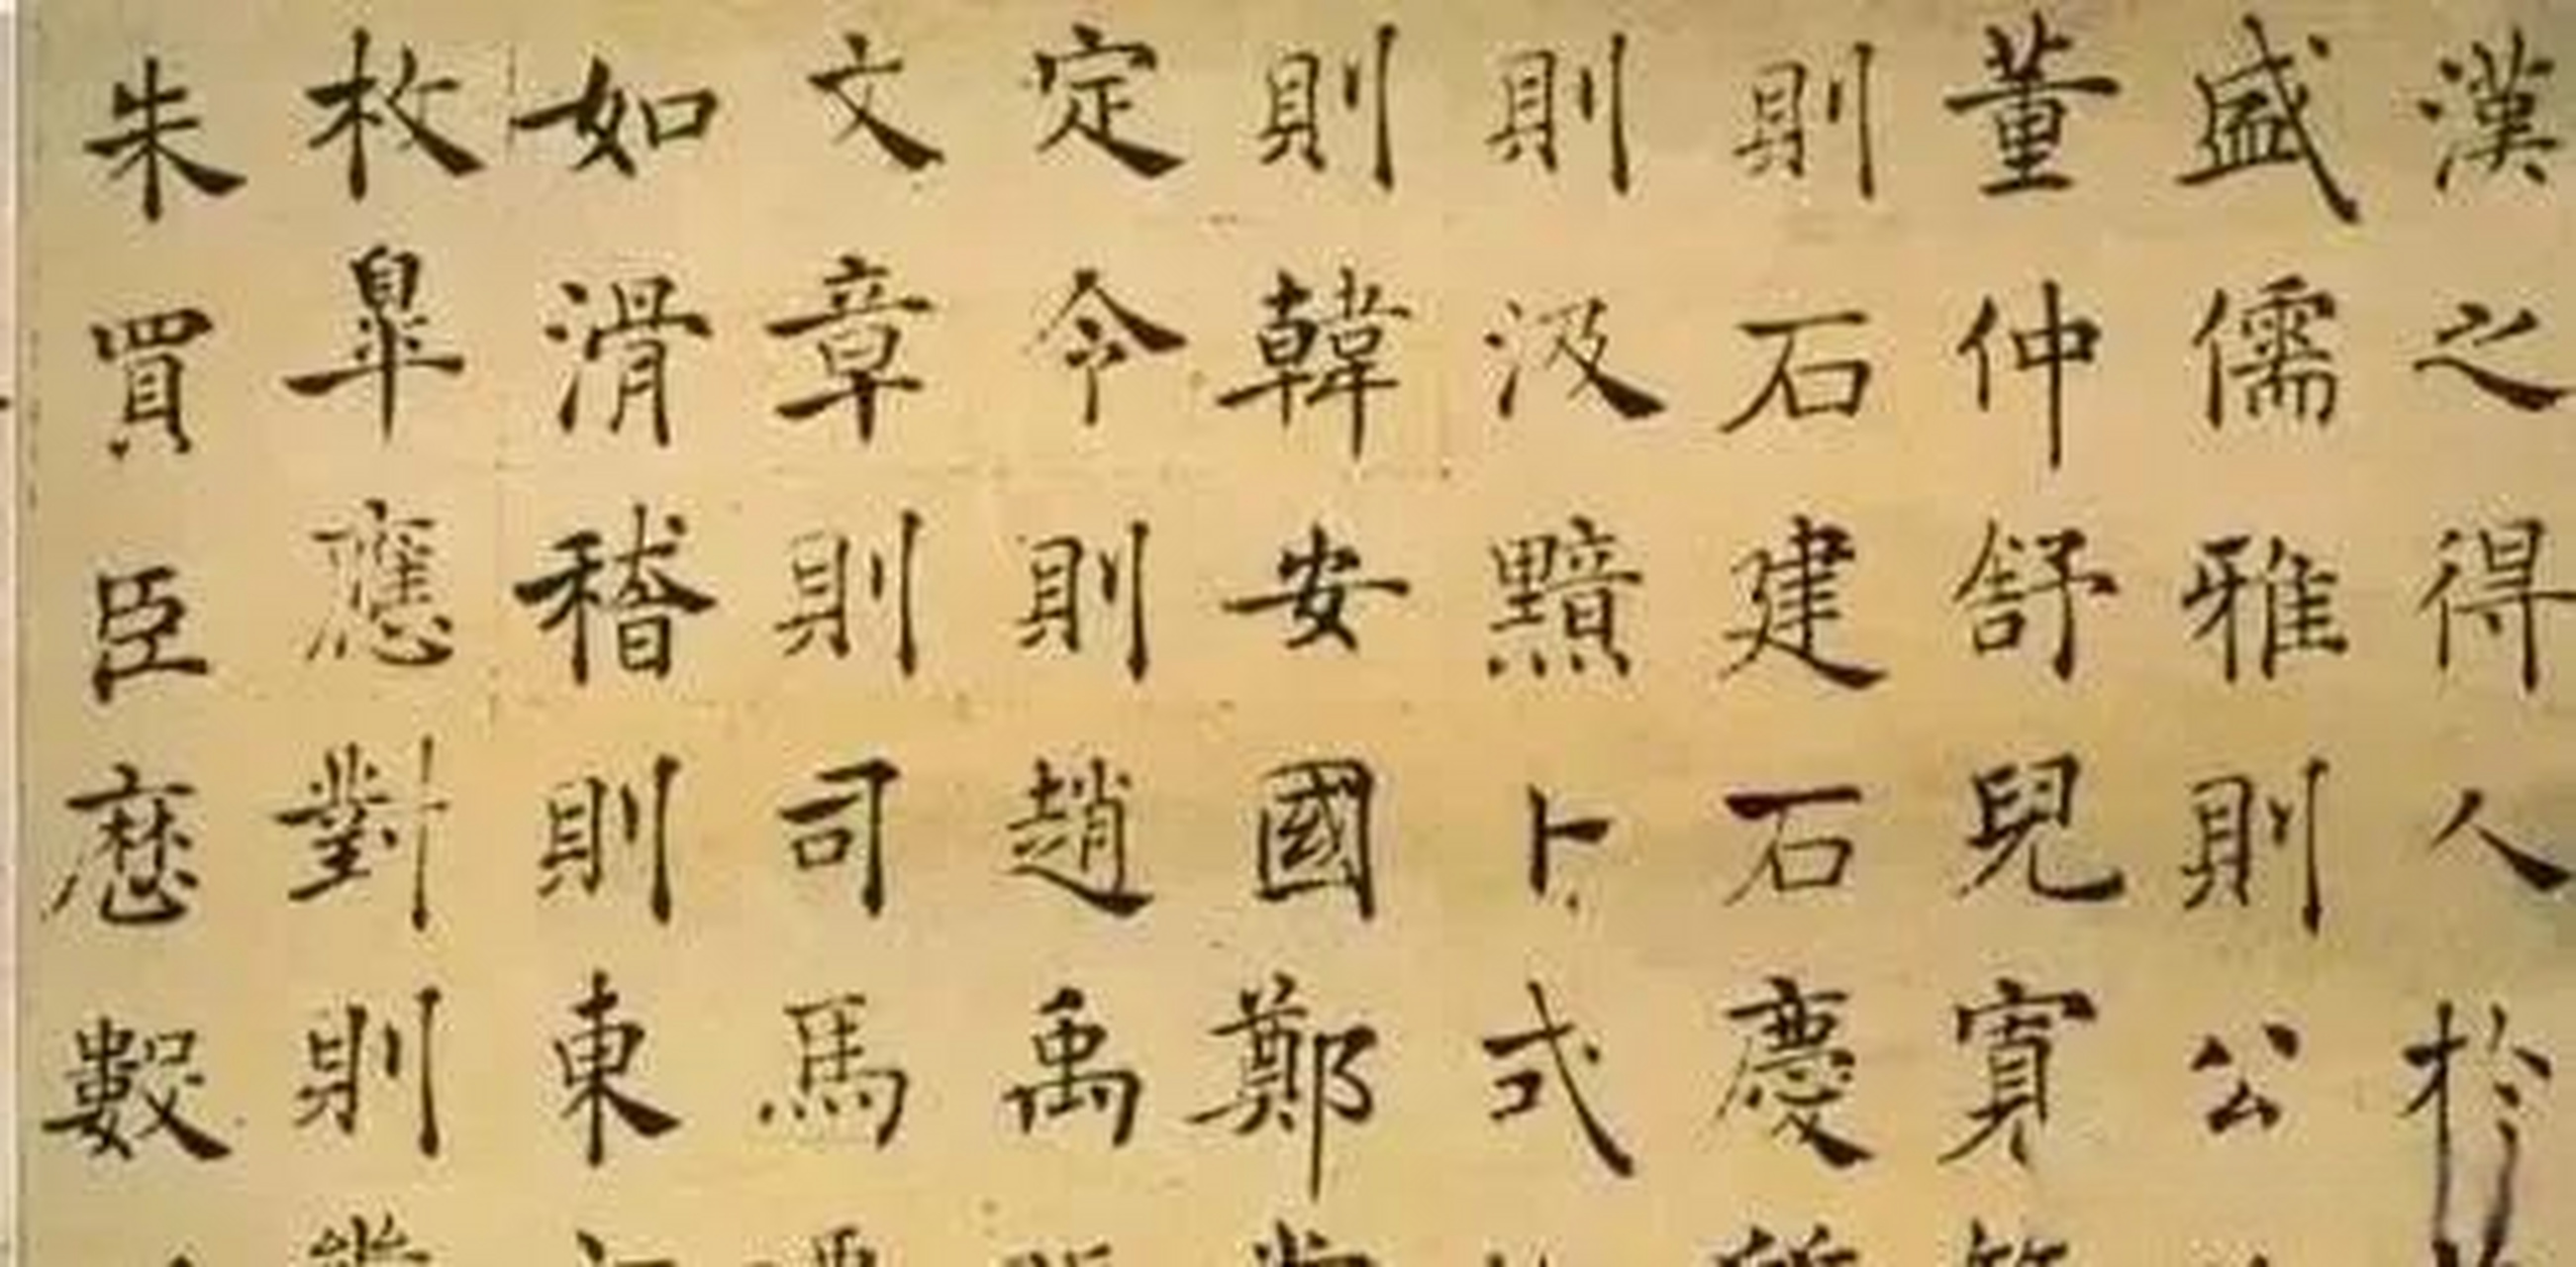 漢之得人於
盛儒雅則公
董仲舒兒寬
則石建石慶
則汲黯卜式
則韓安國鄭
定令則趙禹
文章則司馬
如滑稽則東
枚皋應對則
朱買臣歷數